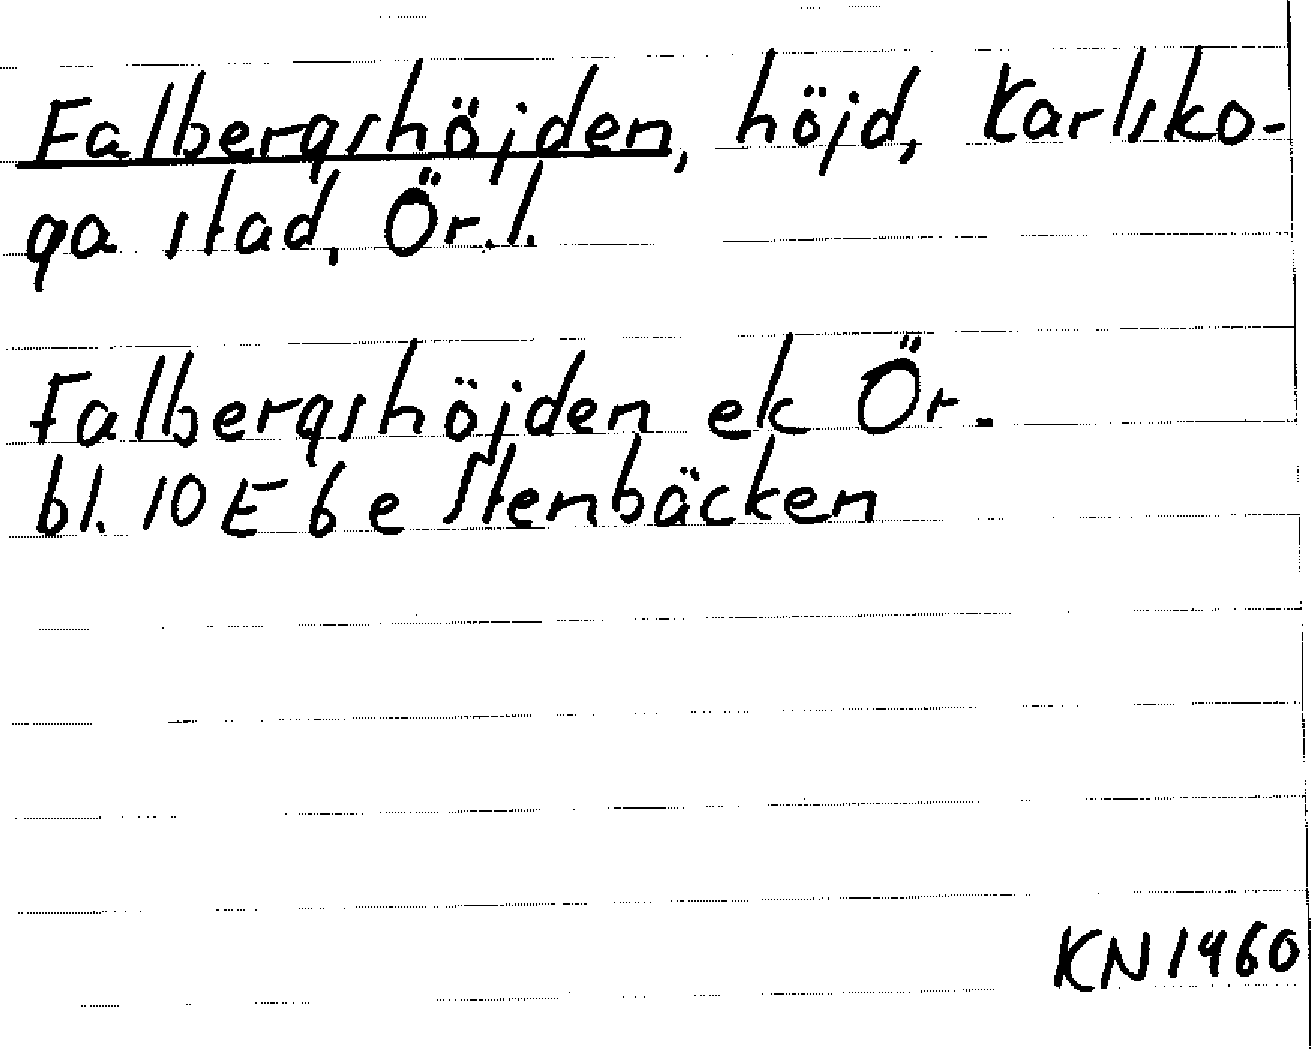 Falbergshöjden, höjd, Karlsko-
ga stad, Ör.l.
Falbergshöjden ek Ör.
bl. 10 E 6 e Stenbäcken
KN 1960